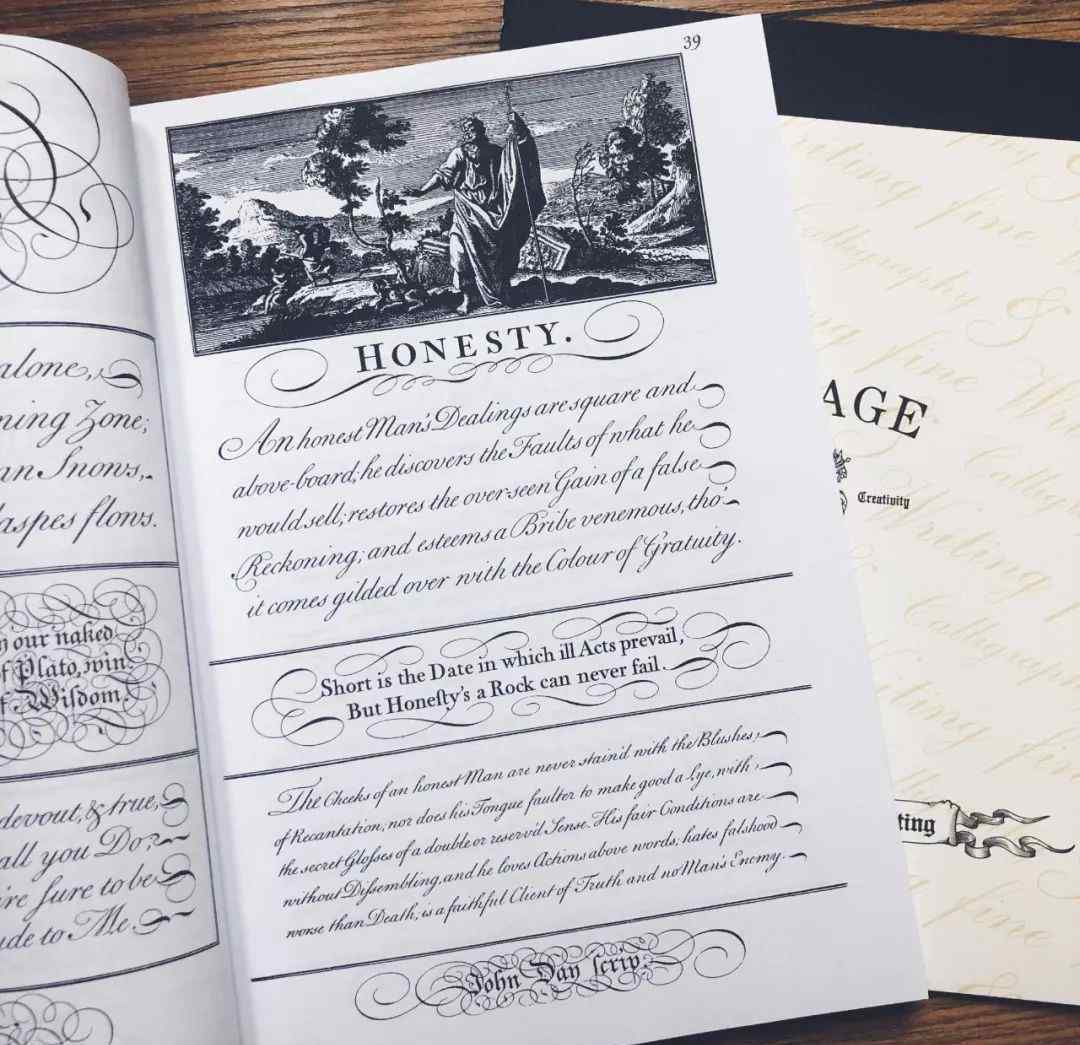 39
HONESTY.
An honest Man's Dealings are square and
above-board; he discovers the Faults of what he
would sell; restores the over-seen Gain of a false
Reckoning; and esteems a Bribe venemous, tho'
it comes gilded over with the Colour of Gratuity.
Short is the Date in which ill Acts prevail,
But Honeſty's a Rock can never fail.
The Cheeks of an honest Man are never stain'd with the Blushes,
of Recantation, nor does his Tongue faulter to make good a Lye, with
the secret Gloſses of a double or reserv'd Sense. His fair Conditions are
without Diſsembling, and he loves Actions above words; hates falshood
worse than Death; is a faithful Client of Truth and no Man's Enemy.
John Day ſcrip.
alone,
ning Zone;
an Snows,
aspes flows.
our naked
f Plato, win
f Wiſdom.
devout, & true,
all you Do?
're ſure to be
ude to Me.
AGE
Creativity
ting
Writing fine
Calligraphy &
fine Wri
Writing
Calligraph
fine